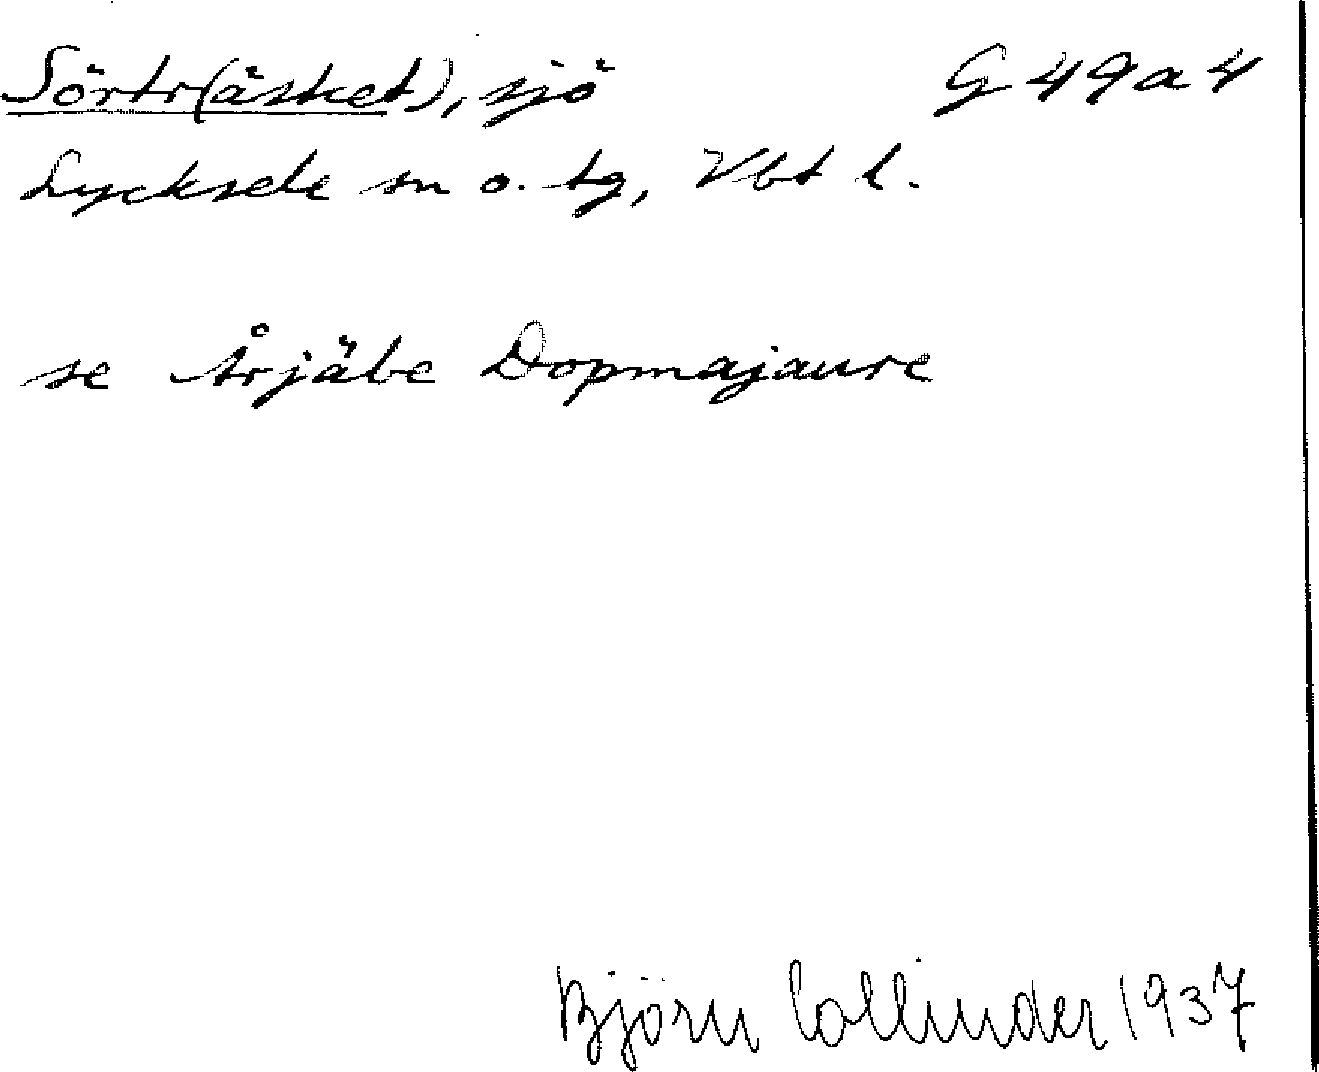 Sörtr(äsket), sjö G 49 a 4
Lycksele sn o. tg, Vbt l.
se Årjäbe Dopmajaure
Björn Collinder 1937